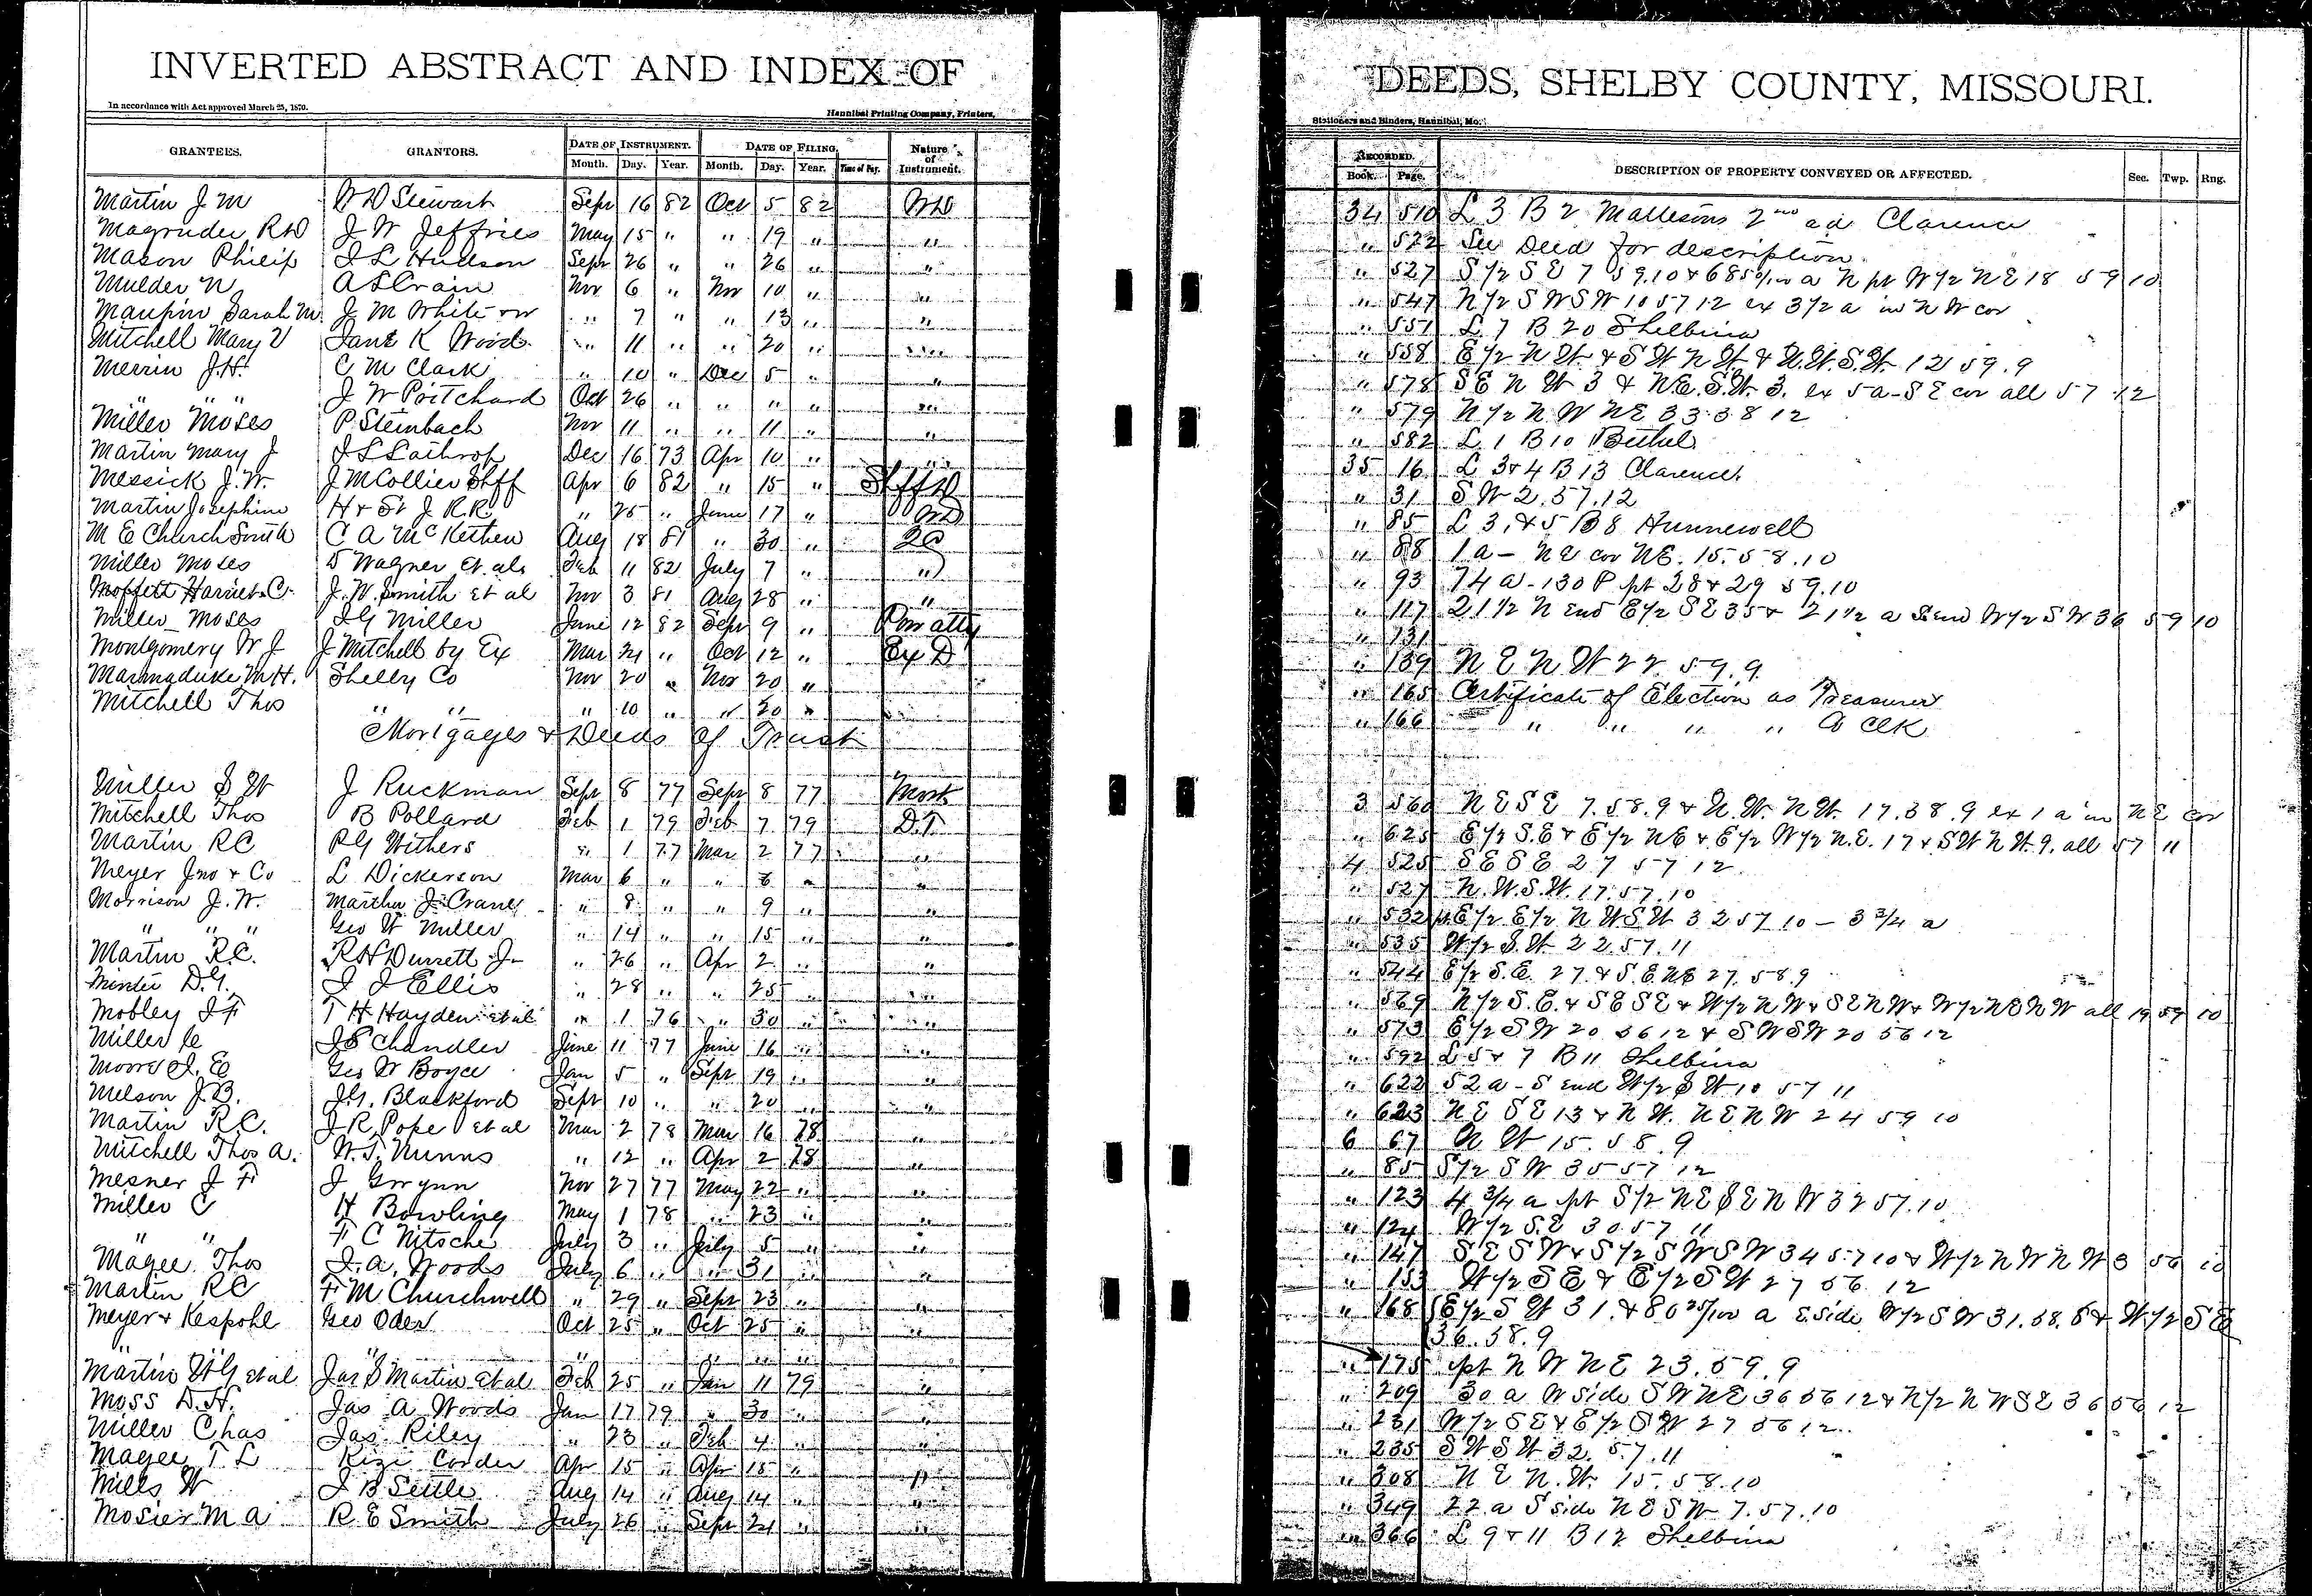 INVERTED ABSTRACT AND INDEX OF DEEDS, SHELBY COUNTY, MISSOURI.
In accordance with Act approved March 25, 1870. Hannibal Printing Company, Printers, Stationers and Binders, Hannibal, Mo.
GRANTEES. GRANTORS. DATE OF INSTRUMENT. DATE OF FILING. Nature of Instrument. RECORDED. DESCRIPTION OF PROPERTY CONVEYED OR AFFECTED. Sec. Twp. Rng.
Month. Day. Year. Month. Day. Year. Time of Day. Book. Page.
Martin J M W D Stewart Sept 16 82 Oct 5 82 WD 34 510 L 3 B 2 Mattesons 2nd ad Clarence
Magruder R D J W Jeffries May 15 " " 19 " " " 522 See Deed for description
Mason Philip J L Hudson Sept 26 " " 26 " " " 527 S 1/2 S E 7 59.10 & 68 a N pt W 1/2 N E 18 59 10
Mulder N A S Crain Nov 6 " Nov 10 " " " 547 N 1/2 S W S W 10 57 12 ex 3 1/2 a in N W cor
Maupin Sarah M. J M White " 7 " " 13 " " " 551 L 7 B 20 Shelbina
Mitchell Mary V Jane K Wood " 11 " " 20 " " " 558 E 1/2 N W. & S W N W. & N.W.S.W. 12 59.9
Merrin J.H. C M Clark " 10 " Dec 5 " " " 578 S E N W 3 & N.E.S.W. 3. ex 5 a - S E cor all 57 12
" " " J W Pritchard Oct 26 " " " " " " 579 N 1/2 N W N E 33 58 12
Miller Moses P Steinbach Nov 11 " " 11 " " " 582 L 1 B 10 Bethel
Martin Mary J J S Lathrop Dec 16 73 Apr 10 " " 35 16 L 3 & 4 B 13 Clarence.
Messick J.W. J M Collier Shff Apr 6 82 " 15 " Shff D " 31 S W 2.57.12
Martin Josephine H & St J R.R. " 25 " June 17 " WD " 85 L 3, & 5 B 8 Hunnewell
M E Church South C A McKethen Aug 18 81 " 30 " QC " 88 1 a - N E cor N E. 15.58.10
Miller Moses D Wagner et als Feb 11 82 July 7 " " " 93 74 a - 130 P pt 28 & 29 59.10
Moffett Harriet C. J.W. Smith et al Nov 3 81 Aug 28 " " " 117 21 1/2 N end E 1/2 S E 35 & 21 1/2 a S end W 1/2 S W 36 59 10
Miller Moses J G Miller June 12 82 Sept 9 " Pow atty " 131
Montgomery W J J Mitchell by Ex Mar 21 " Oct 12 " Ex D " 139 N E N W 22 59.9
Marmaduke W H. Shelby Co Nov 20 " Nov 20 " " 165 Certificate of Election as Treasurer
Mitchell Thos " " " 10 " " 20 " " 166 " " " " C Clk
Mortgages & Deeds of Trust
Miller S W J Ruckman Sept 8 77 Sept 8 77 Mort 3 560 N E S E 7.58.9 & N.W. N W. 17.58.9 ex 1 a in N E cor
Mitchell Thos B Pollard Feb 1 79 Feb 7 79 D.T. " 625 E 1/2 S.E & E 1/2 N E & E 1/2 W 1/2 N.E. 17 & S W N W. 9. all 57 11
Martin R C R G Withers " 1 77 Mar 2 77 " 4 525 S E S E 27 57 12
Meyer Jno & Co L Dickerson Mar 6 " " 8 " " " 527 N.W.S.W. 17.57.10
Morrison J.W. Martha J. Crane " 8 " " 9 " " " 532 pt E 1/2 E 1/2 N W S W 32 57 10 - 3 3/4 a
" " " Geo W Miller " 14 " " 15 " " " 535 W 1/2 S.W. 22.57.11
Martin R.C. R H Durrett Jr " 26 " Apr 2 " " " 544 E 1/2 S.E. 27. & S.E.N E 27, 58.9
Minter D.G. J J Ellis " 28 " " 25 " " " 569 N 1/2 S.E. & S E S E & W 1/2 N W & S E N W & W 1/2 N E N W all 19 59 10
Mobley J F T H Hayden et al " 1 76 " 30 " " " 573 E 1/2 S W 20 56 12 & S W S W 20 56 12
Miller C J S Chandler June 11 77 June 16 " " " 592 L 5 & 7 B 11 Shelbina
Moore J. E Geo W Boyce Jan 5 " Sept 19 " " " 622 52 a - S end W 1/2 S W 10 57 11
Melson J.B. J.G. Blackford Sept 10 " " 20 " " " 623 N E S E 13 & N W. N E N W 24 59 10
Martin R.C. J R Pope et al Mar 2 78 Mar 16 78 " 6 67 N W 15.58.9
Mitchell Thos A. W.T. Nunns " 12 " Apr 2 78 " " 85 S 1/2 S W 35 57 12
Mesner J F J Gwynn Nov 27 77 May 22 " " " 123 4 3/4 a pt S 1/2 N E S E N W 32 57.10
Miller C H Bowling May 1 78 " 23 " " " 124 W 1/2 S.E 30 57 11
" " F C Nitsche July 3 " July 5 " " " 147 S E S W & S 1/2 S W S W 34 57 10 & W 1/2 N W N W 3 56 10
Magee Thos J. A. Woods July 6 " " 31 " " " 153 W 1/2 S E & E 1/2 S W 27 56 12
Martin R C F M Churchwell " 29 " Sept 23 " " " 168 E 1/2 S W 31. & 80 25/100 a E side W 1/2 S W 31.58.8 & W 1/2 S E
36.58.9
Meyer & Kespohl Geo Oden Oct 25 " Oct 25 " "
" " " " " " " " " 175 pt N W N E 23.59.9
Martin W G et al Jas S Martin et al Feb 25 " Jan 11 79 " " 209 30 a W side S W N E 36 56 12 & N 1/2 N W S E 36 56 12
Moss D.H. Jas A Woods Jan 17 79 " 30 " " " 231 W 1/2 S E & E 1/2 S W 27 56 12
Miller Chas Jas. Riley " 23 " Feb 4 " " " 235 S W S W 32.57.11
Magee T L Kizi Corder Apr 15 " Apr 15 " " " 308 N E N.W. 15.58.10
Mills W J B Settle Aug 14 " Aug 14 " " " 349 22 a S side N E S W 7.57.10
Mosier M A R E Smith July 26 " Sept 24 " " " 366 L 9 & 11 B 12 Shelbina